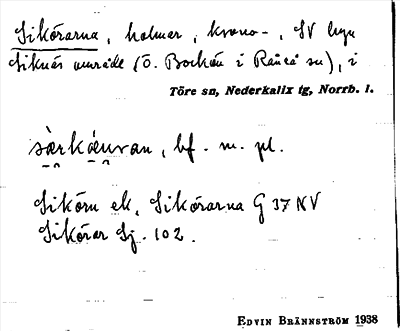 Sikörarna, holmar, krono-, SV byn
Siknäs område (Ö. Bockön i Råneå sn), i
Töre sn, Nederkalix tg, Norrb. l.
bf. m. pl.
Sikörn ek, Sikörarna G 37 NV
Sikörar Sj. 102.
EDVIN BRÄNNSTRÖM 1938